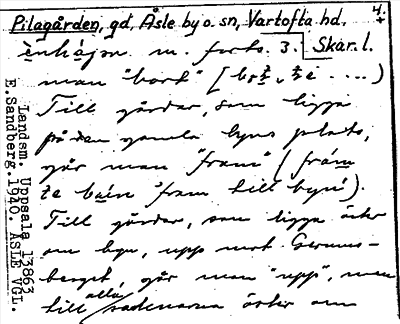 4.
Pilagården, gd, Åsle by o. sn, Vartofta hd.
m. forts. 3. Skar. l.
man "bort" (
Till gårdar, som ligga
på den gamla byns plats,
går man "fram" (fràm
te "fram till byn").
Till gårdar, som ligga öster
om byn, upp mot Gerums-
berget, går man "upp", men
till alla gårdarna öster om
Landsm. Uppsala 13863
E.Sandberg.1940. ÅSLE VGL.